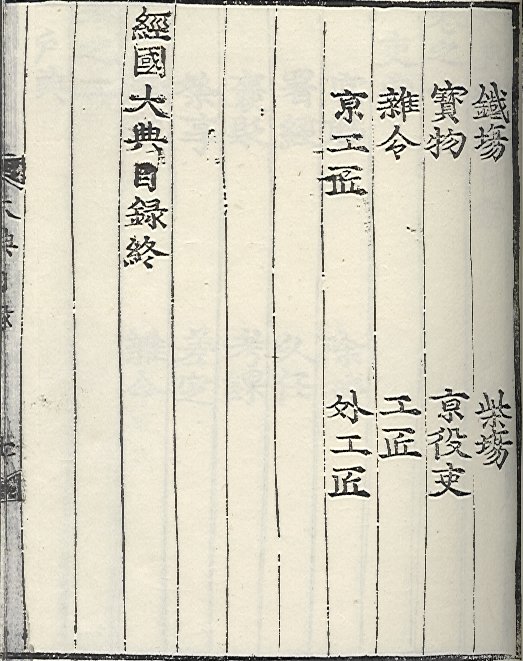 鐵場 柴場
寶物 京役吏
雜令 工匠
京工匠 外工匠
經國大典目録終